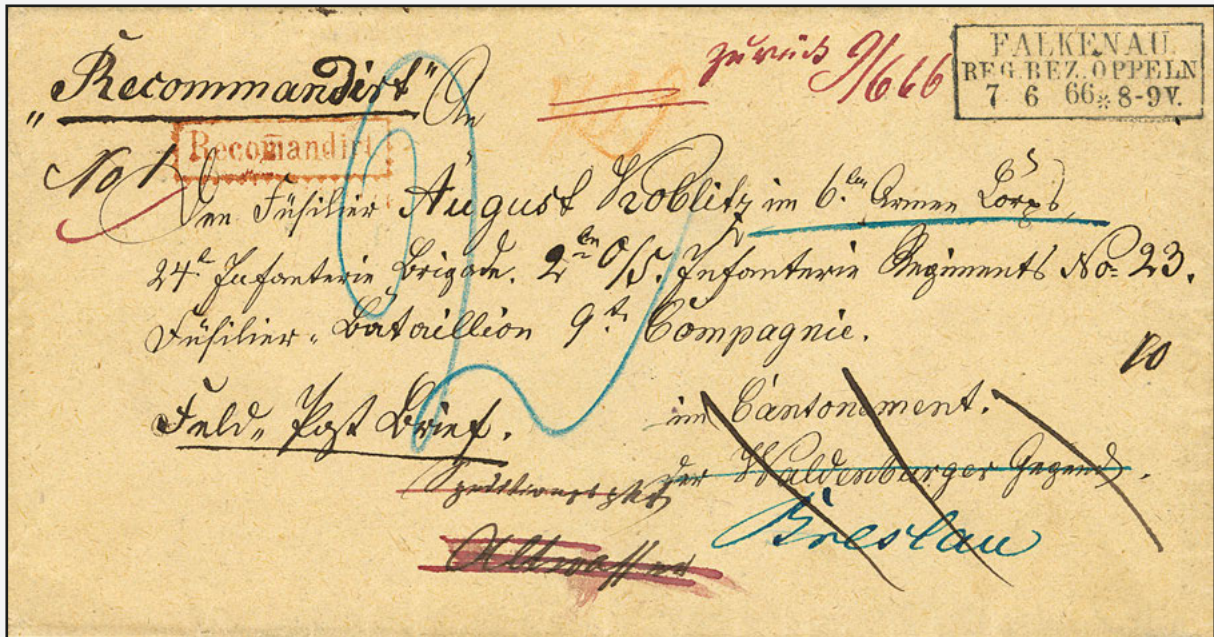 zurück 9/6 66
FALKENAU
REG. BEZ. OPPELN
7 6 66 * 8-9 V.
„Recommandirt“ An
Recomandirt
No 1
den Füsilier August Koblitz im 6ten Armee Corps,
24te Infanterie Brigade. 2ten O/S. Infanterie Regiments No 23.
Füsilier-Bataillion 9te Compagnie.
10
Feld-Post Brief. im Cantonement.
der Waldenburger Gegend.
Breslau
Altwasser